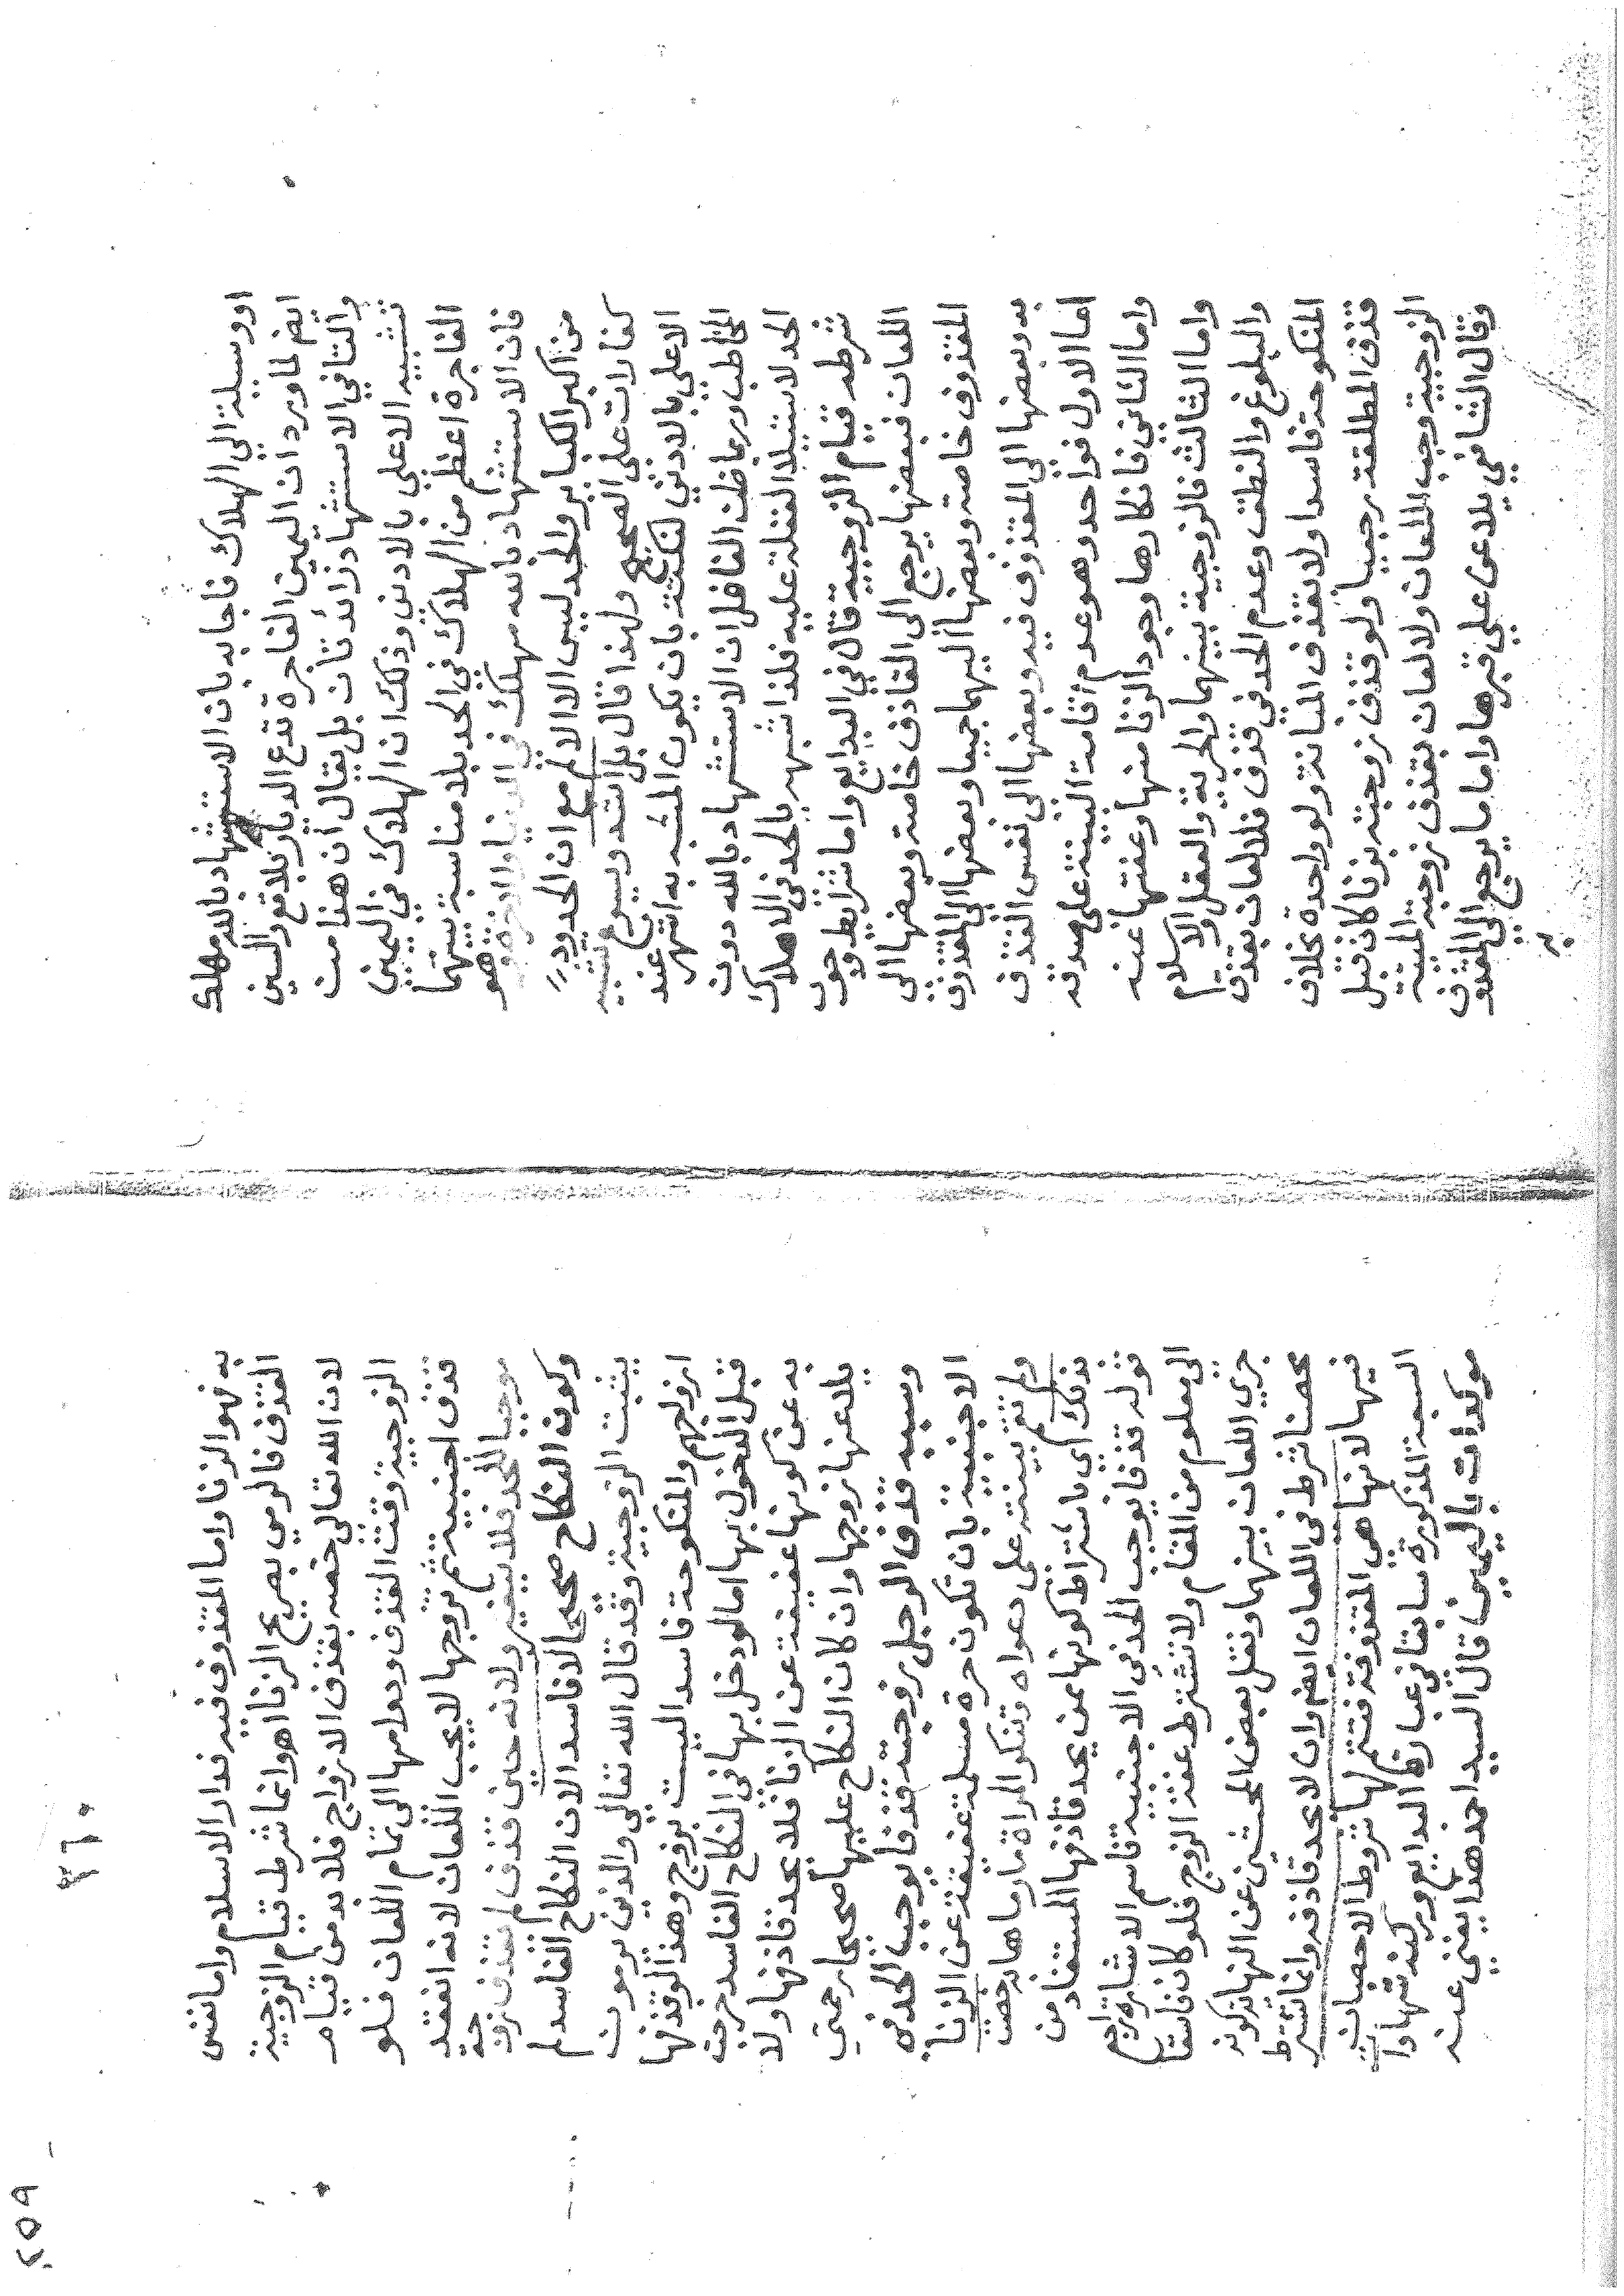 اووسيلة الي الهلاك فاجابه بان الاستشهاد بالله مهلك
ايضا لماورد ان اليمين الفاجرة تدع الديار بلاقع والسين
والتا في الاستشهاد زائدتان بل يقال ان هذا من
تشبيه الاعلي بالادني وذلك ان الهلاك في اليمين
الفاجرة اعظم من الهلاك في الحد بلا مناسبة بينهما
فان الاستشهاد بالله مهلك في الدنيا والاخرة
من اكبر الكباير والحد ليس الا الالم مع ان الحدود
كفارات علي الصحيح ولهذا قال بل اشد ويسوغ تشبيه
الاعلي بالادني لنكتة بان يكون المشبه به اشهر عند
المخاطب وربما ظن الغافل ان الاستشهاد بالله دون
الحد لاستيلا الغفلة عليه فلذا شبهه بالحد في الاهلاك
شرطه قيام الزوجية قال في البدايع واما شرايط وجوب
اللعان فبعضها يرجع الي القاذف خاصة وبعضها الي
المقذوف خاصة وبعضها اليهما جميعا وبعضها الي المقذوف
به وبعضها الي المقذوف فيه وبعضها الي نفس القذف
اما الاول فواحد وهو عدم اقامة البينة علي صدقه
واما الثاني فانكارها وجود الزنا منها وعفتها عنه
واما الثالث فالزوجية بينهما والحرية والعقل والاسلام
والبلوغ والنطق وعدم الحد في قذف فلا لعان بقذف
المنكوحة فاسدا ولا بقذف المبانة ولو واحدة بخلاف
قذف المطلقة رجعيا ولو قذف زوجته بزنا كان قبل
الزوجية وجب اللعان ولا لعان بقذف زوجته الميتة
وقال الشافعي يلاعن علي قبرها واما ما يرجع الي المقذوف
به
به فهو الزنا واما المقذوف فيه فدار الاسلام واما نفس
القذف فالرمي بصريح الزنا اهـ وانما شرط قيام الزوجية
لان الله تعالي خصه بقذف الازواج فلا بد من قيام
الزوجية وقت القذف ودوامها الي تمام اللعان فلو
قذف اجنبية ثم تزوجها لا يجب اللعان لانه انعقد
موجبا للحد فلا يتغير ولانه حين قذف لم تقذف زوجته
وكون النكاح صحيحا لا فاسدا لان النكاح الفاسد لم
يثبت الزوجية وقد قال الله تعالي والذين يرمون
ازواجهم والمنكوحة فاسدا ليست بزوج وهذا لو قذفها
قبل الدخول بها اما لو دخل بها في النكاح الفاسد خرجت
به عن كونها عفيفة عن الزنا فلا يحد قاذفها ولا
يلاعنها زوجها وان كان النكاح عليها صحيحا رحمتي
وسببه قذف الرجل زوجته قذفا يوجب الحد في
الاجنبية بان تكون حرة مسلمة عفيفة عن الزنا
ولم تقم بينة علي دعواه وتنكر المراة ما رماها به خصت
بذلك اي باشتراط كونها ممن يحد قاذفها المستفاد من
قوله قذفا يوجب الحد في الاجنبية فاسم الاشارة راجع
الي معلوم من المقام ولا تشترط عفة الزوج فلو كان فاسقا
جري اللعان بينهما ونقل بعض المحشين عن النهاية كونه
محصنا شرط في اللعان ايضا وان لا يحد قاذفه وانما اشترط
فيها لانها هي المقذوفة فتتم لها شروط الاحصان
السبعة المذكورة سابقا في عبارة البدايع وركنه شهادات
موكدات باليمين قال السيد احمد هذا يغني عنه
٢٦٠
٢٥٩